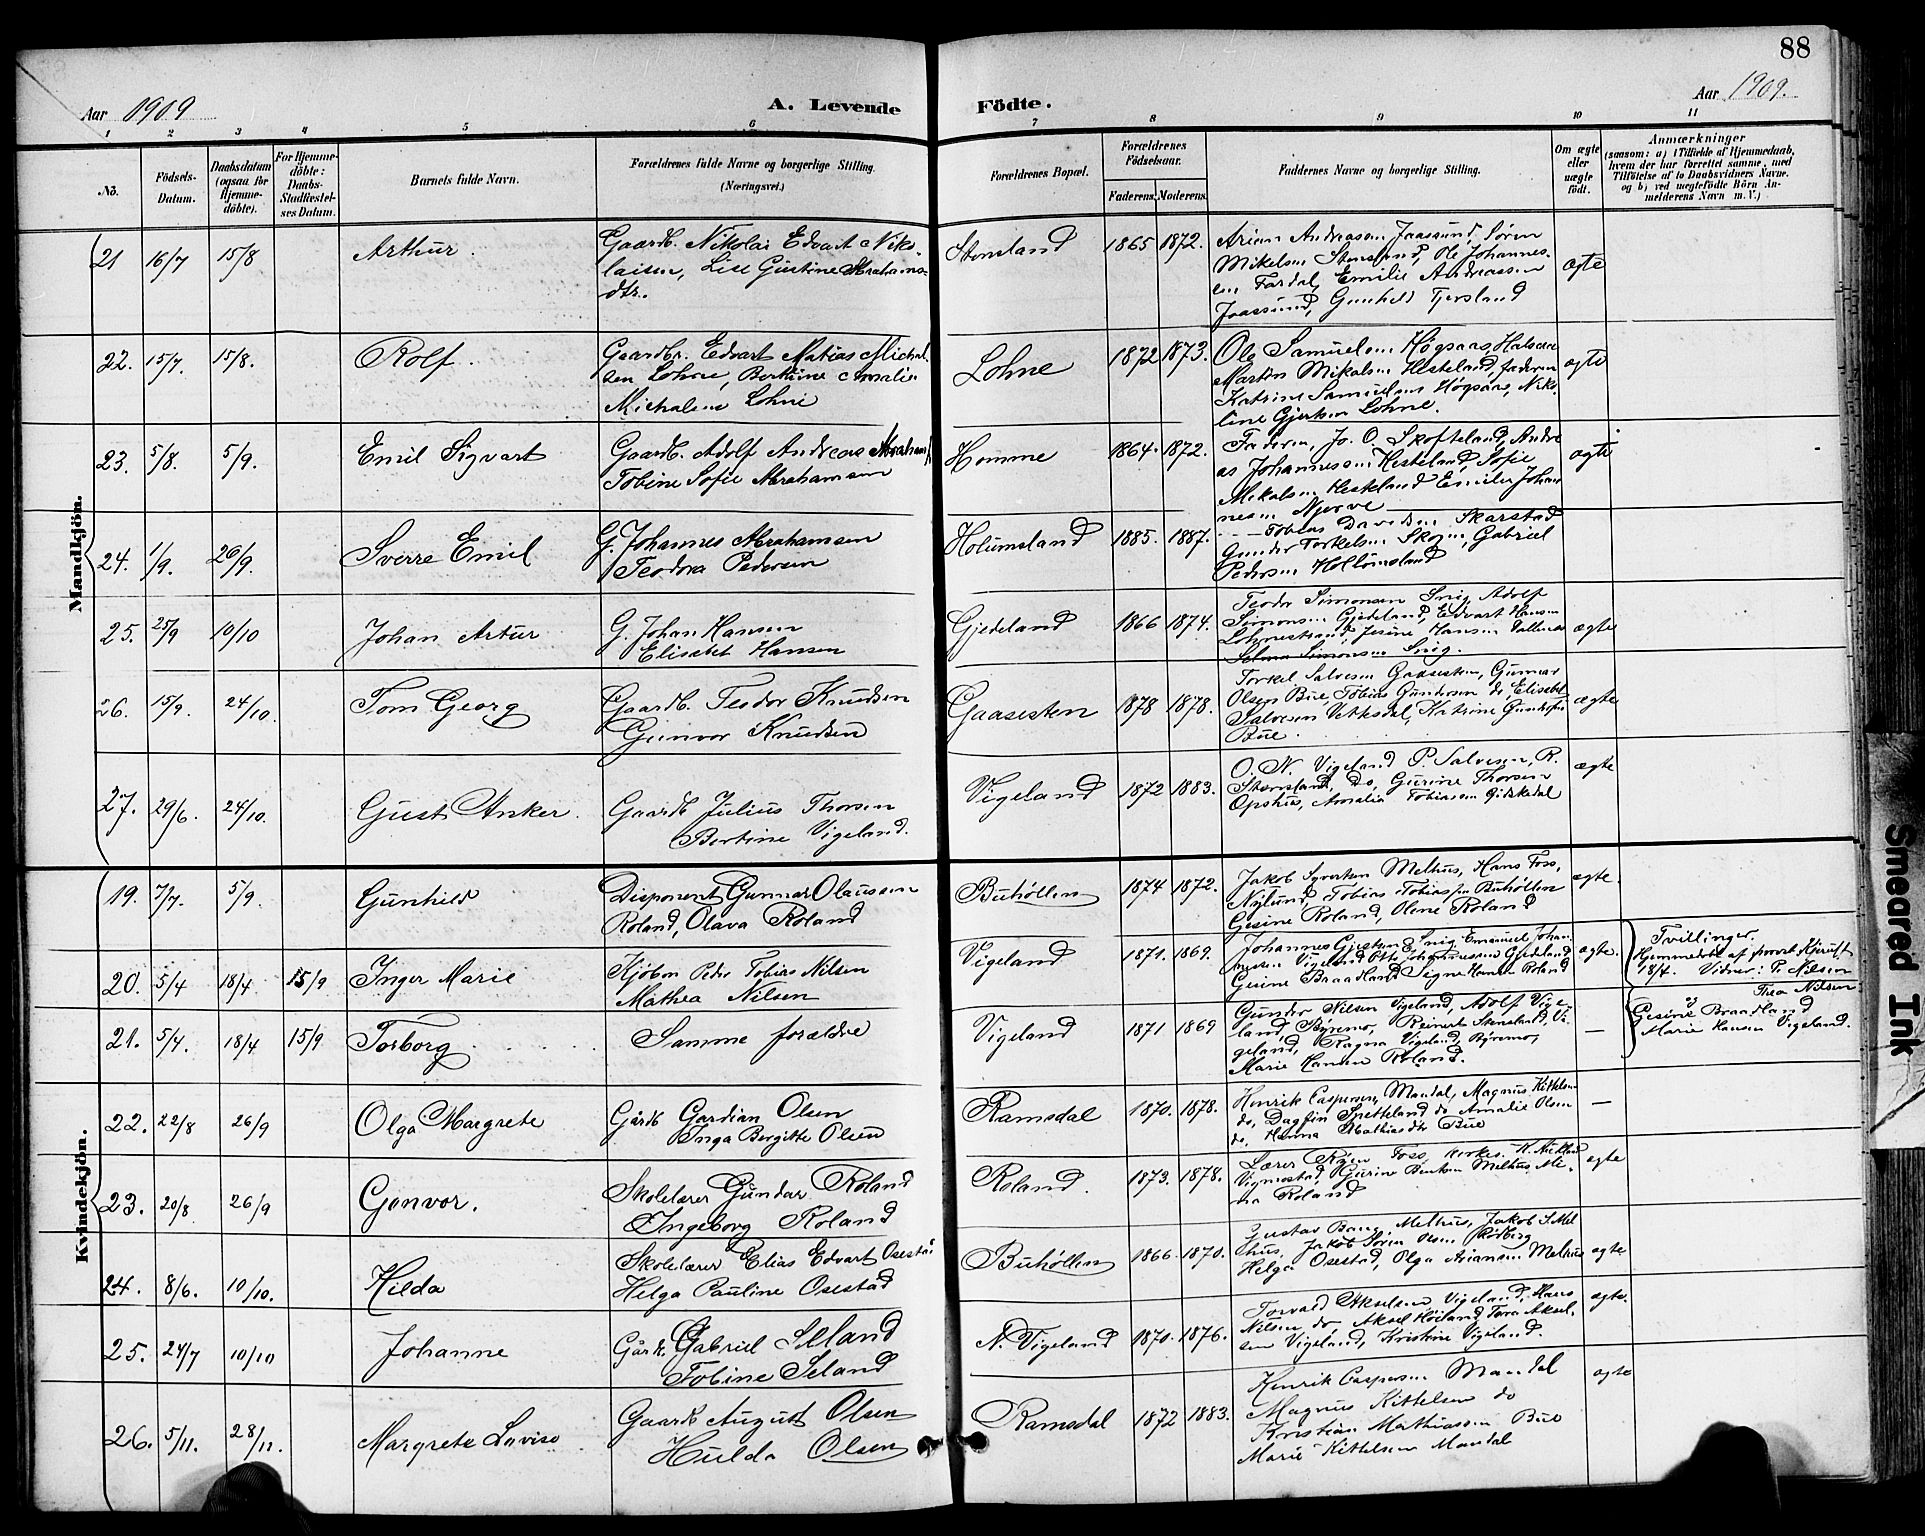 88
Aar 1909
A. Levende
Födte.
Aar 1909.
1 2 3 4 5 6 7 8 9 10 11
No.
Födsels-Datum.
Daabsdatum (ogsaa for Hjemme-döbte).
For Hjemme-döbte: Daabs-Stadfæstel-ses Datum.
Barnets fulde Navn.
Forældrenes fulde Navne og borgerlige Stilling. (Næringsvei.)
Forældrenes Bopæl.
Forældrenes Födselsaar.
Faderens. Moderens.
Faddernes Navne og borgerlige Stilling.
Om ægte eller uægte födt.
Anmærkninger
(saasom: a) i Tilfælde af Hjemmedaab, hvem der har forrettet samme, med Tilföielse af to Daabsvidners Navne. og b) ved uægtefödte Börn An-melderens Navn m.V.)
Mandkjön.
21 16/7 15/8 Arthur.
Gaardb. Nikolai Edvart Niko-
laisen, Lise Gustine Abrahams-
dtr.
Stensland 1865 1872.
Arian Andreasen Jaassund, Søren
Mikelsen Stensland, Ole Johannes-
en Fardal, Emilie Andreassen
Jaassund, Gunhild Tjersland
ægte
22. 15/7. 15/8. Rolf.
Gaardbr. Edvart Matias Michal-
sen Lohne, Bertine Amalie
Michalsen Lohne
Lohne 1872 1873.
Ole Samuelsen Høgsaas,
Martin Mikalsen Hesteland, faderen
Katrine Samuelsen Høgsaas, Niko-
line Gjertsen Lohne.
ægte
23. 5/8. 5/9. Emil Sigvart
Gaardb. Adolf Andreas Abraham
Tobine Sofie Abrahamsen
Homme 1864. 1872.
Faderen, Jo. O. Skofteland, Andre
as Johannessen Hesteland, Sofie
Mikalsen Hesteland Emilie Johan
nesen Njerve
ægte
24. 1/9. 26/9. Sverre Emil
G. Johannes Abrahamsen
Teodora Pedersen
Holumsland 1885. 1887.
Tobias Davidsen Skarstad
Gunder Torkelsen Skogen, Gabriel
Pedersen Hollumsland
25. 25/9 10/10 Johan Artur
G. Johan Hansen
Elisabet Hansen
Gjedeland 1866 1874.
Teodor Simonsen Snig, Adolf
Simonsen Gjedeland, Edvart Hansen
Lohnestrand, Jesine Hansen
Selma Simonsen Snig.
ægte
26. 15/9. 24/10. Tom Georg
Gaardb. Teodor Knudsen
Gunvor Knudsen
Gaasesten 1878 1878.
Torkel Salvesen Gaasesten, Gunnar
Olsen Bue, Tobias Gundersen do, Elisabet
Salvesen Vetksdal, Katrine Gundersen
Bue.
ægte
27. 29/6. 24/10. Gust Anker.
Gaardb Julius Thorsen
Bertine Vigeland.
Vigeland 1872 1883.
O. N. Vigeland P. Salvesen, R.
Stensland, Do, Gurine Thorsen
Opshus, Amalia Tobiassen
ægte
Kvindekjön.
19. 7/7. 5/9. Gunhild
Disponent Gunnar Olaussen
Roland, Olava Roland
Buhøllen 1874 1872.
Jakob Syvertsen Melhus, Hans Foss,
Nylund, Tobias Tobiassen Buhøllen
Gesine Roland, Olene Roland
ægte.
20. 5/4 18/4 15/9 Inger Marie
Kjøbm Peder Tobias Nilsen
Mathea Nilsen
Vigeland 1871. 1869.
Johannes Gjertsen Snig, Emanuel Johan-
nessen Vigeland Otto Johannessen Gjedeland
Gesine Braadland Signe Hansen Roland
ægte.
Tvillinger,
Hjemmedøbt af provst
18/4. Vidner: P. Nilsen
Thea Nilsen
21. 5/4. 18/4 15/9 Torborg
Samme forældre
Vigeland 1871. 1869
Gunder Nilsen Vigeland, Adolf Vige-
land, Byremo, Reinert Stensland, Vi-
geland, Ragna Vigeland, Byremo,
Marie Hansen Roland.
—
Gesine Braadland
Marie Hansen Vigeland.
22. 22/8 26/9 Olga Margrete
Gårdb Gardian Olsen
Inga Bergitte Olsen
Ramsdal 1870. 1878.
Henrik Caspersen, Mandal, Magnus Kittelsen
do, Dagfin Spetteland do Amalie Olsen
do, Hanna Mathiasdtr Bue
—
23. 20/8 26/9 Gonvor.
Skolelærer Gundar Roland
Ingeborg Roland
Roland. 1873. 1878.
Lærer Foss, Kirkes.
Vigmostad, Gurine Bentsen Melhus, Mi-
na Roland
ægte
24. 8/6. 10/10. Hilda
Skolelærer Elias Edvart Osestad
Helga Pauline Osestad
Buhøllen 1866. 1870.
Gustav Melhus, Jakob S. Mel
hus, Jakob Søren Olsen
Helga Osestad, Olga Ariansen Melhus
ægte
25. 24/7 10/10 Johanne
Gårdb. Gabriel Seland
Tobine Seland
N. Vigeland 1870. 1876.
Torvald Akselsen Vigeland, Hans
Nilsen do, Aksel Høiland Tora Aksel-
sen Vigeland, Kristine Vigeland.
ægte.
26. 5/11. 28/11. Margrete Lovise
Gaardb August Olsen
Hulda Olsen
Ramsdal 1872 1883.
Henrik Caspersen Mandal
Magnus Kittelsen do
Kristian Mathiassen Bue
Marie Kittelsen Mandal
ægte
Smeared Ink